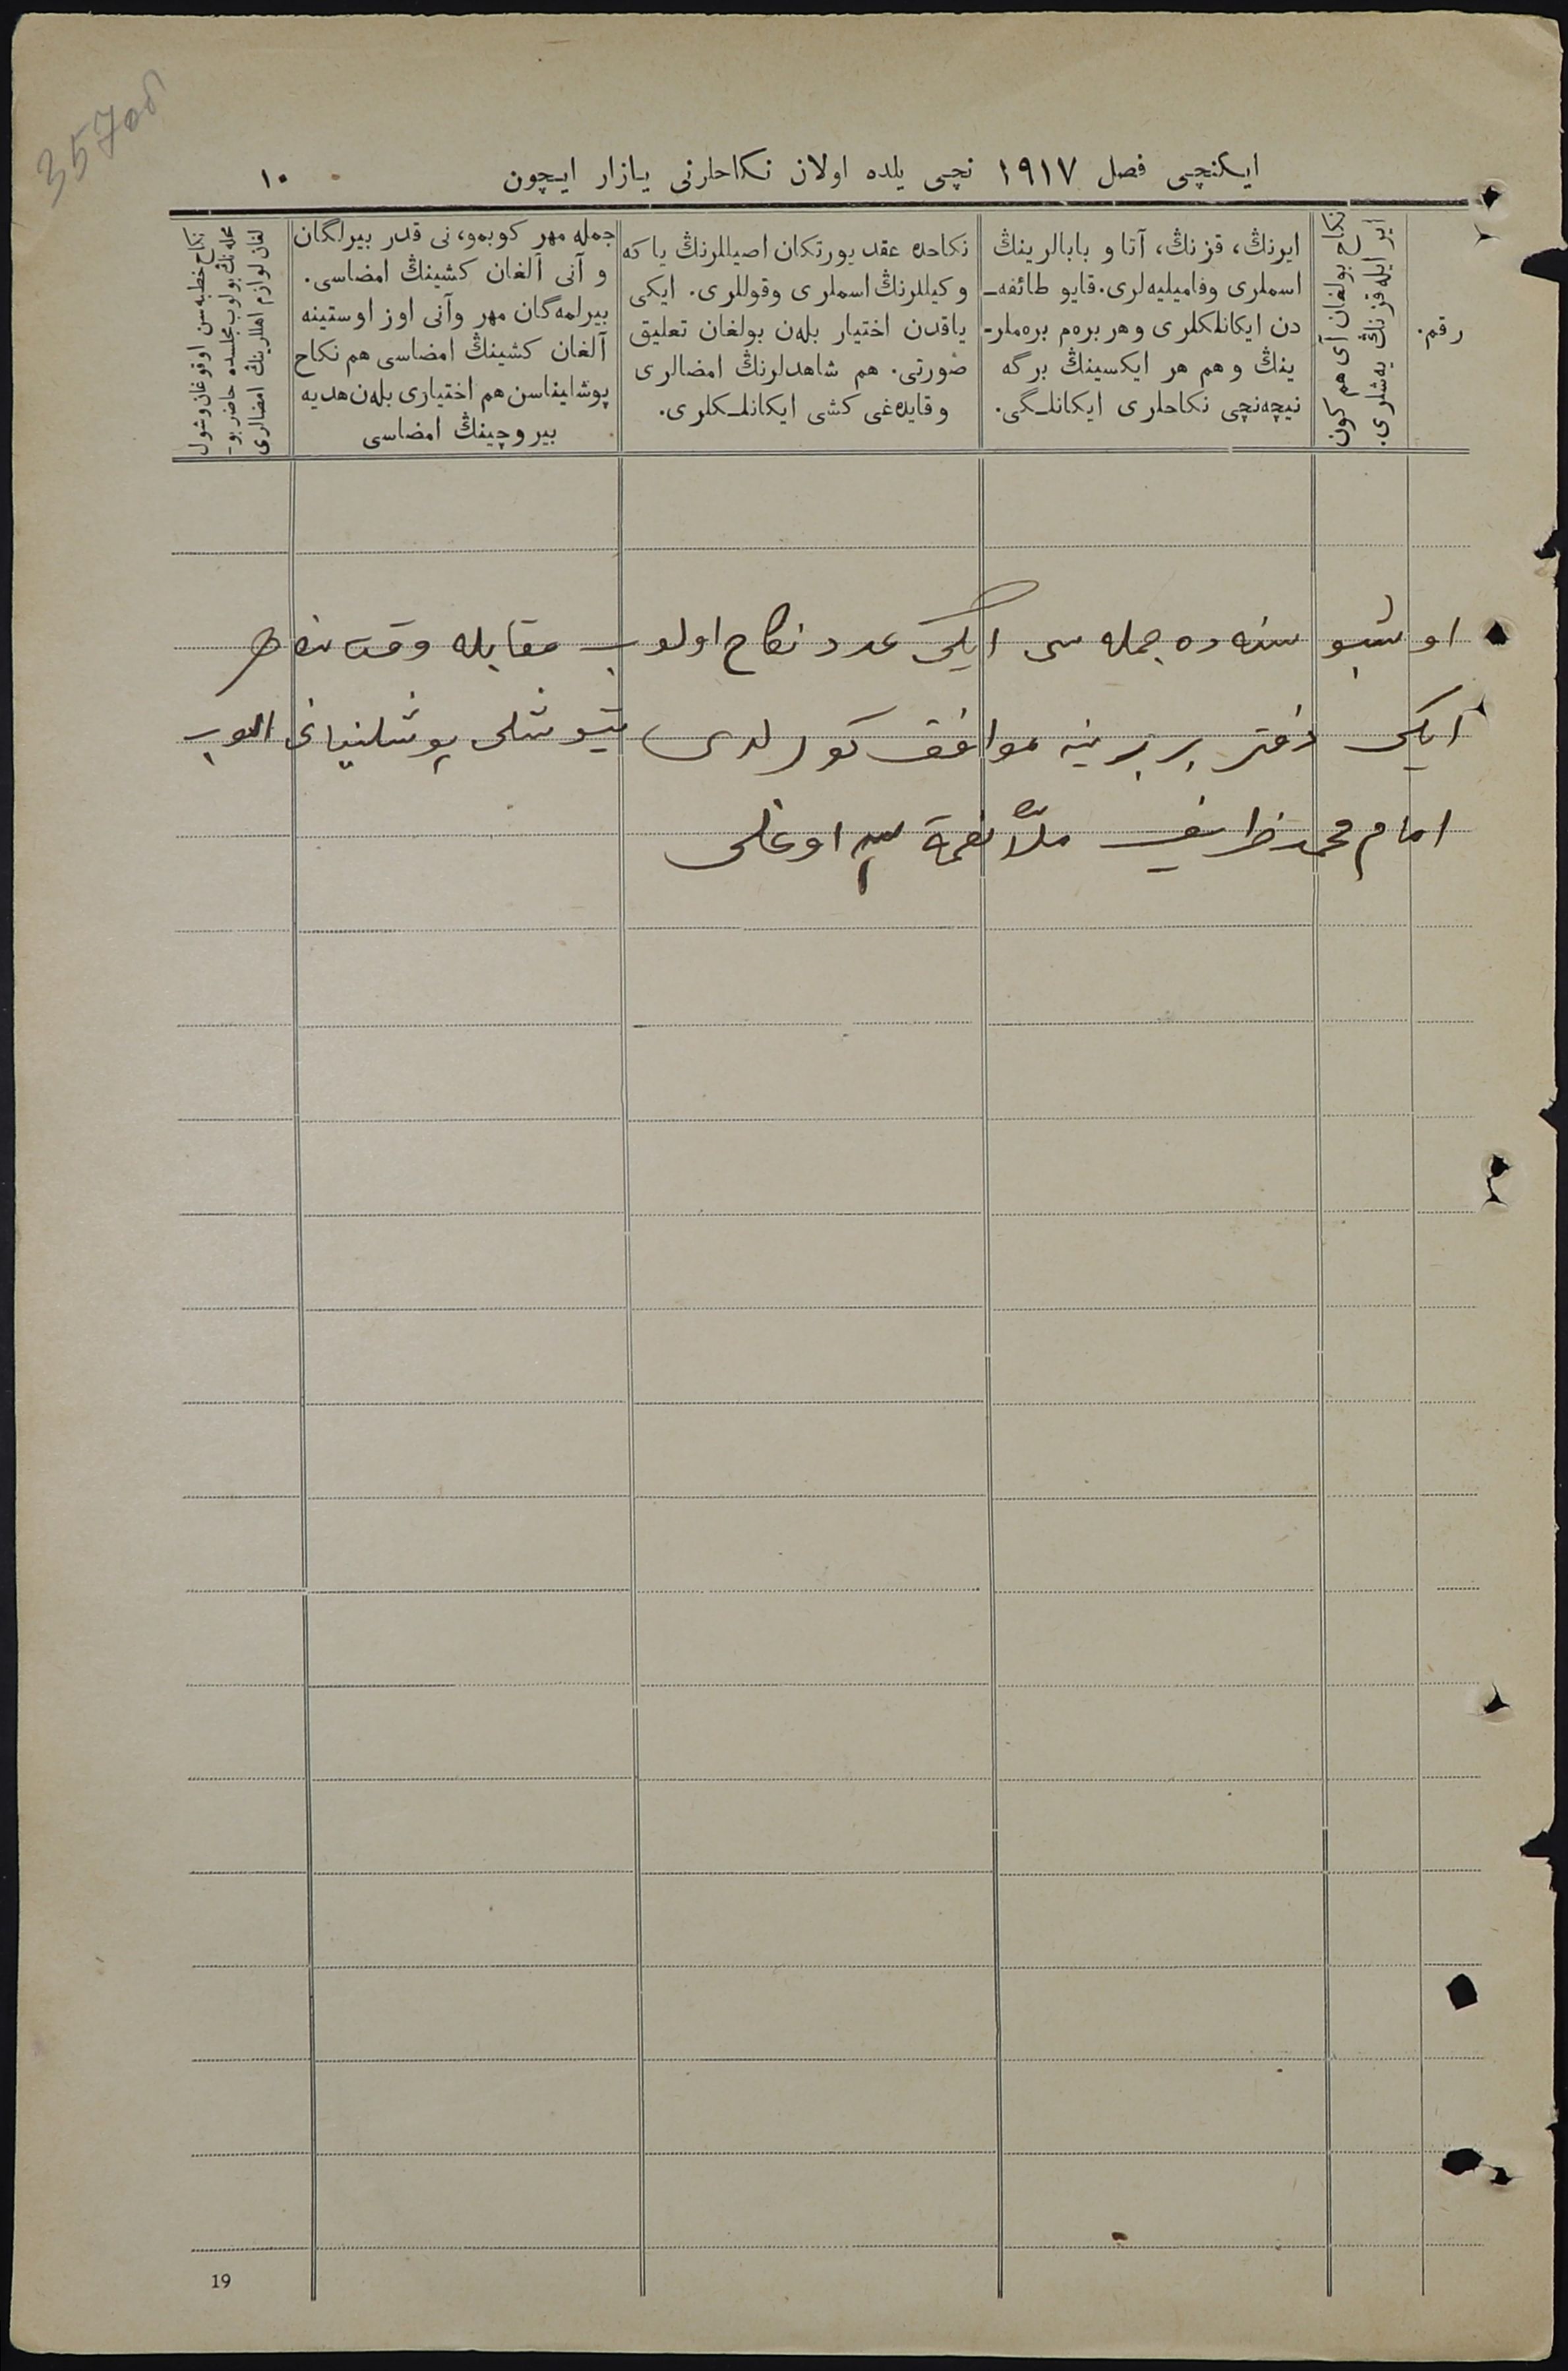 357об
ایکنچی فصل ۱۹۱۷ نچی یلده اولان نکاحلرنی یازار ایچون ۱۰
رقم.
نکاح بولغان آی هم کون
ایر ایله قزنڭ یەشلری.
ایرنڭ، قزنڭ، آتا و بابالرینڭ
اسملری وفامیلیەلری. قایو طائفه‌ـ
دن ایکانلکلری وهر برەم برەملرـ
ینڭ وهم هر ایکسینڭ برگه
نیچەنچی نکاحلری ایکانلـگی.
نکاحده عقد یورتکان اصیللرنڭ یا که
وکیللرنڭ اسملری وقوللری. ایکی
یاقدن اختیار بلەن بولغان تعلیق
صورتی. هم شاهدلرنڭ امضالری
وقایده‌غی کشی ایکانلـکلری.
جمله مهر کوبمو، نی قدر بیرلگان
و آنی آلغان کشینڭ امضاسی.
بیرلمەگان مهر وآنی اوز اوستینه
آلغان کشینڭ امضاسی هم نکاح
پوشلیناسن هم اختیاری بلەن هدیه
بیروچینڭ امضاسی
نکاح خطبه‌سن اوقوغان وشول
محله‌نڭ بولوب مجلسده حاضر بوـ
لغان لوازم اهللرینڭ امضالری
اوشبو سنه ده جمله سی ایکی عدد نکاح اولوب مقابله وقتنده هر
ایکی دفتر بر برینه موافق کورلدی تیوشلی پوشلنیانی الوب
امام محمد ظریف ملّا نعمة الله اوغلی
19